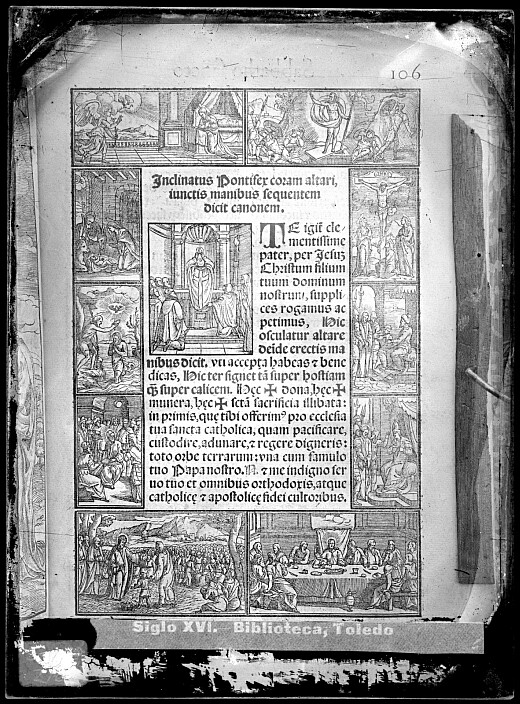 106
Inclinatus Pontifex coram altari,
iunctis manibus sequentem
dicit canonem.
TE igit̃ cle-
mentissime
pater, per Jesuz
Christum filium
tuum dominum
nostrum, suppli
ces rogamus ac
petimus, Hic
osculatur altare
deĩde erectis ma
nibus dicit. vti accepta habeas ⁊ bene
dicas, Hic ter signet tã super hostiam
q̃ super calicem. Hęc ✠ dona, hęc ✠
munera, hęc ✠ sctã sacrificia illibata:
in primis, que tibi offerim⁹ pro ecclesia
tua sancta catholica, quam pacificare,
custodire, adunare, ⁊ regere digneris:
toto orbe terrarum: vna cum famulo
tuo Papa nostro. N. ⁊ me indigno ser
uo tuo et omnibus orthodoxis, atque
catholicę ⁊ apostolicę fidei cultoribus.
Siglo XVI. Biblioteca, Toledo